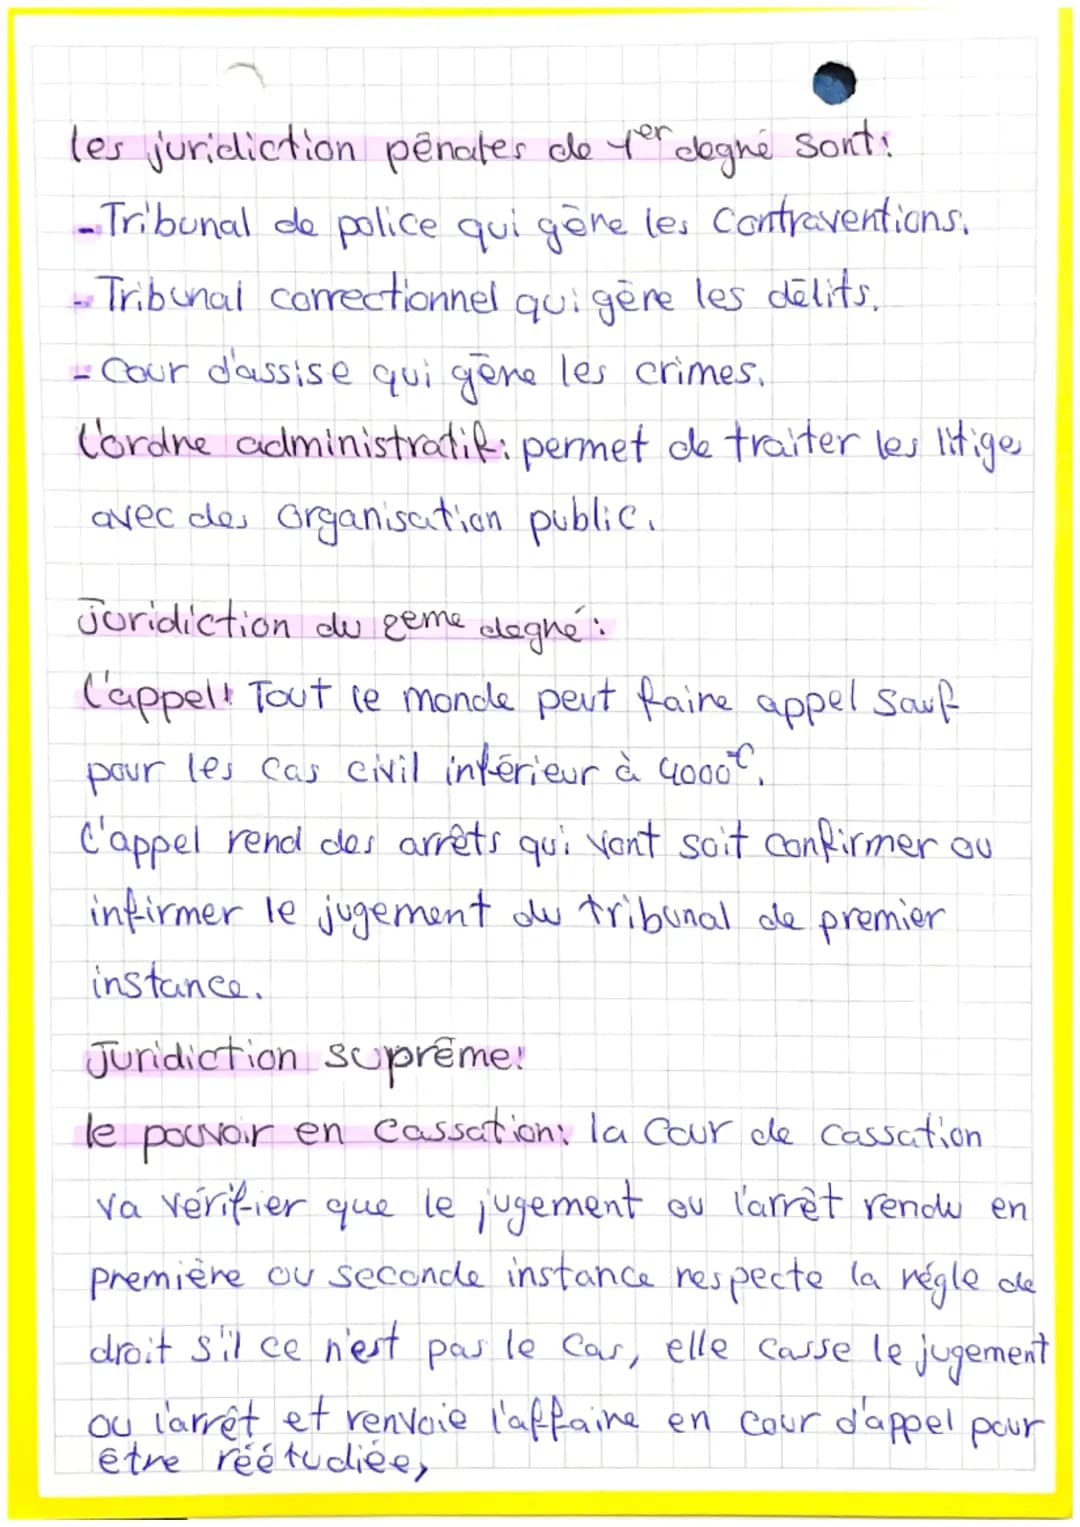 les juridiction pénales de 1er degré sont:
- Tribunal de police qui gère les contraventions.
- Tribunal correctionnel qui gère les délits.
- Cour d'assise qui gère les crimes.
L'ordre administratif: permet de traiter les litige
avec des organisation public.
Juridiction du 2eme degré:
L'appel: Tout le monde peut faire appel sauf
pour les cas civil inférieur à 4000€.
L'appel rend des arrêts qui vont soit confirmer ou
infirmer le jugement du tribunal de premier
instance.
Juridiction suprême:
le pouvoir en cassation: la Cour de cassation
va vérifier que le jugement ou l'arrêt rendu en
première ou seconde instance respecte la régle de
droit s'il ce n'est pas le cas, elle casse le jugement
ou l'arrêt et renvoie l'affaire en cour d'appel pour
être réétudiée,